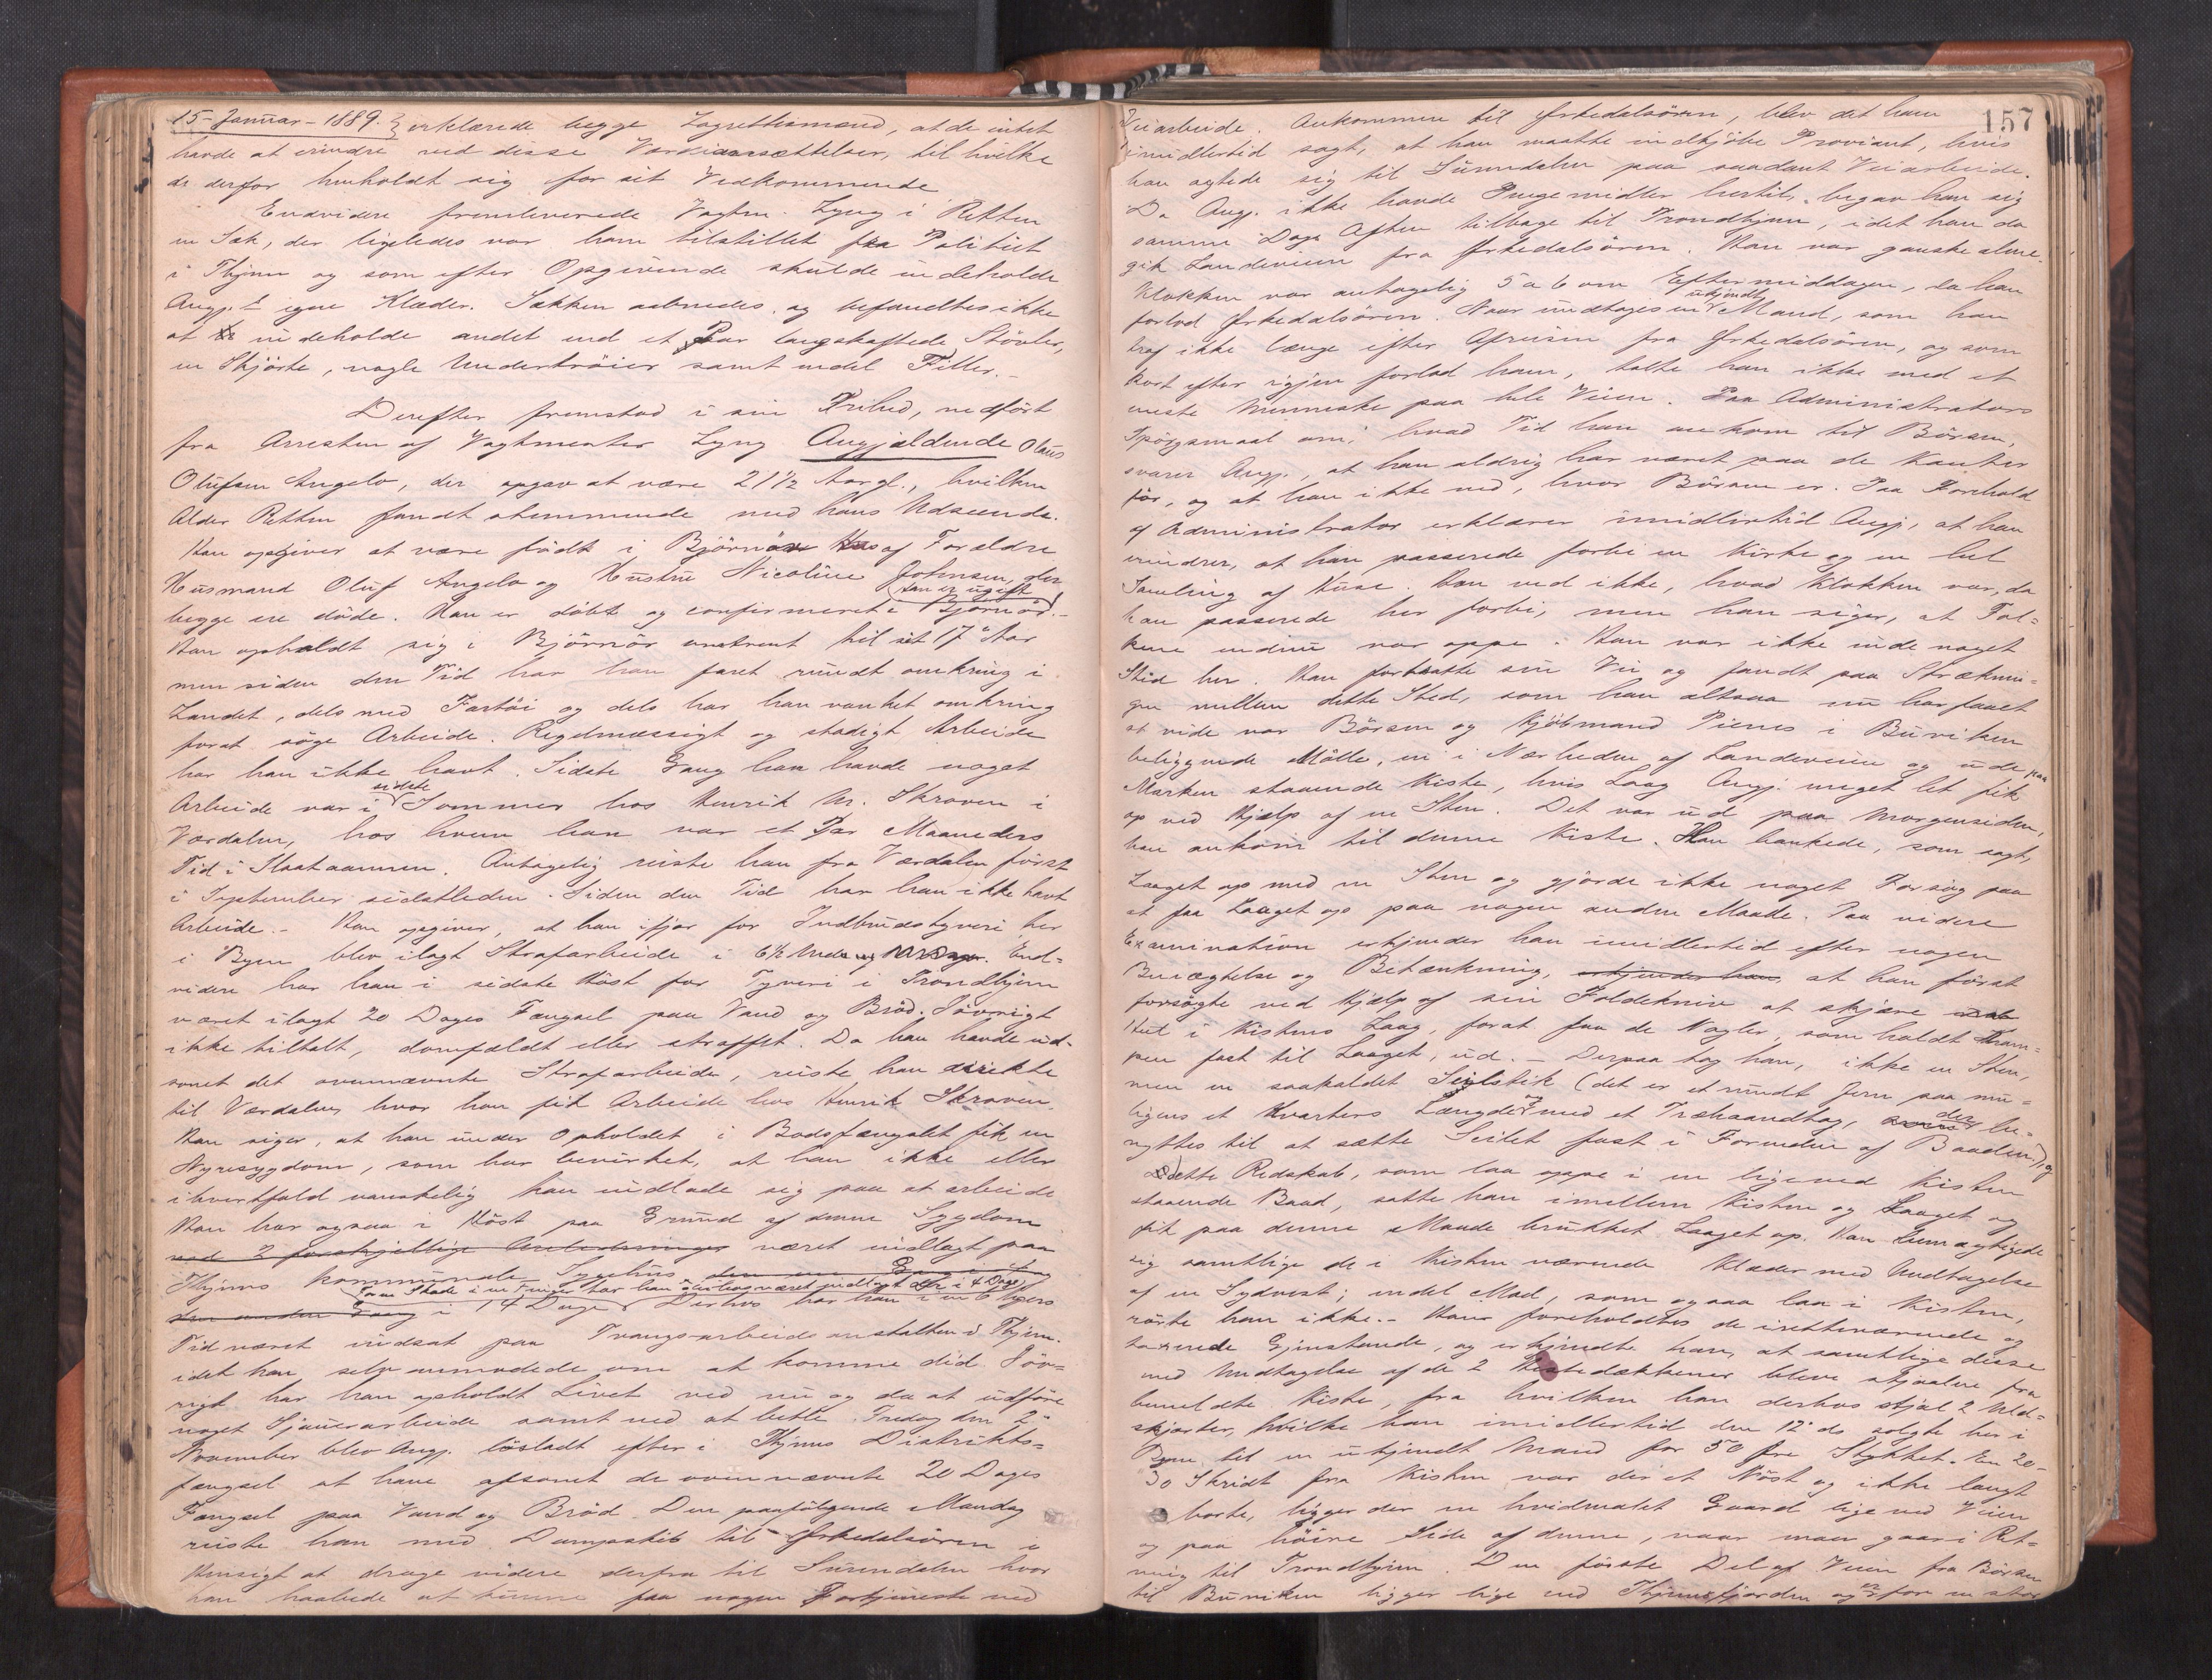 15 - Januar - 1889. erklærede begge Lagrettesmænd, at de intet
havde at erindre ved disse Værdiansættelser, til hvilke
de derfor henholdt sig for sit Vedkommende
Endvidere fremleverede Vagtm. Lyng i Retten
en Sæk, der ligeledes var ham tilstillet fra Politiet
i Thjem og som efter Opgivende skulde indeholde
Angj.s egne Klæder. Sækken aabnedes og befandtes ikke
at indeholde andet end et Par langskaftede Støvler,
en Skjörte, nogle Undertröier samt endel Filler. -
Derefter fremstod i sin Frihed, nedfört
fra Arresten af Vagtmester Lyng Angjældende Olaus
Olufsen Angelo, der opgav at være 21 1/2 Aar gl., hvilken
Alder Retten fandt stemmende med hans Udseende.
Han opgiver at være födt i Björnör af Forældre
Husmand Oluf Angelo og Hustru Nicoline Johnsen, der
begge ere döde. Han er döbt og confirmeret i Björnör. - Han er ugift
Han opholdt sig i Björnör omtrent til sit 17de Aar
men siden den Tid har han faret rundt omkring i
Landet, dels med Fartöi og dels har han vanket omkring
forat söge Arbeide. Regelmæssigt og stadigt Arbeide
har han ikke havt. Sidste Gang han havde noget
Arbeide var i sidste Sommer hos Henrik M. Skroven i
Værdalen, hos hvem han var et Par Maaneders
Tid i Slaataannen. Antagelig reiste han fra Værdalen först
i September sidstleden. Siden den Tid har han ikke havt
Arbeide. - Han opgiver, at han ifjor for Indbrudstyveri her
i Byen blev ilagt Strafarbeide i 6 1/2 Mdr. End=
videre har han i sidste Höst for Tyveri i Trondhjem
været ilagt 20 Dages Fængsel paa Vand og Bröd. Iövrigt
ikke tiltalt, domfældt eller straffet. Da han havde ud-
sonet det ovennævnte Strafarbeide, reiste han direkte
til Værdalen, hvor han fik Arbeide hos Henrik Skroven.
Han siger, at han under Opholdet i Bodsfængslet fik en
Nyresygdom, som har bevirket, at han ikke eller
ihvertfald vanskelig kan indlade sig paa at arbeide
Han har ogsaa i Höst paa Grund af denne Sygdom
ved 2 forskjellige Anledninger været indlagt paa
Thjems kommunale Sygehus den ene Gang i
for en Skade i en Finger har han ogsaa været indlagt der i 4 Dage
den anden Gang i 14 Dage. Derhos har han i en 6 Ugers
Tid været indsat paa Tvangsarbeidsanstalten i Thjem.
idet han selv anmodede om at komme did. Iöv=
rigt har han opholdt Livet ved nu og da at udföre
noget Sjauerarbeide samt ved at betle. Fredag den 2de
November blev Angj. lösladt efter i Thjems Distrikts=
fængsel at have afsonet de ovennævnte 20 Dages
Fængsel paa Vand og Bröd. Den paafölgende Mandag
reiste han med Dampskib til Örkedalsören i
Hensigt at drage videre derfra til Surendalen hvor
han haabede at komme paa nogen Fortjeneste ved
157
Veiarbeide. Ankommen til Örkedalsören, blev det ham
imidlertid sagt, at han maatte indkjöbe Proviant, hvis
han agtede sig til Sunndalen paa saadant Veiarbeide.
Da Angj. ikke havde Pengemidler hertil, begav han sig
samme Dags Aften tilbage til Trondhjem, idet han da
gik Landeveien fra Örkedalsören. Han var ganske alene.
Klokken var antagelig 5 a 6 om Eftermiddagen, da han
forlod Örkedalsören. Naar undtages en ukjendt Mand, som han
traf ikke længe efter Afreisen fra Örkedalsören, og som
kort efter igjen forlod ham, talte han ikke med et
eneste Menneske paa hele Veien. Paa Administrators
Spörgsmaal om, hvad Tid han ankom til Börsen,
svarer Angj., at han aldrig har været paa de Kanter
för, og at han ikke ved, hvor Börsen er. Paa Forehold
af Administrator erklærer imidlertid Angj., at han
erindrer, at han passerede forbi en Kirke og en hel
Samling af Huse. Han ved ikke, hvad Klokken var, da
han passerede her forbi, men han siger, at Fol=
kene endnu var oppe. Han var ikke inde noget
Sted her. Han fortsatte sin Vei og fandt paa Stræknin=
gen mellem dette Sted, som han altsaa nu har faaet
at vide var Börsen og Kjöbmand Pienes i Buviken
beliggende Mölle, en i Nærheden af Landeveien og ude paa
Marken staaende Kiste, hvis Laag Angj. meget let fik
op ved Hjælp af en Sten. Det var ud paa Morgensiden,
han ankom til denne Kiste. Han bankede, som sagt,
Laaget op med en Sten og gjorde ikke noget Forsög paa
at faa Laaget op paa nogen anden Maade. Paa videre
Examination erkjender han imidlertid efter nogen
Benægtelse og Betænkning, erkjender han, at han först
forsögte ved Hjælp af sin Foldekniv at skjære
Hul i Kistens Laag, forat faa de Nagler, som holdt Kram=
pen fast til Laaget, ud. - Derpaa tog han, ikke en Sten,
men en saakaldet Seilstik (det er et rundt Jern paa om=
ligens et Kvarters Længde og med et Træhaandtag, der be=
nyttes til at sætte Seilet fast i Forenden af Baaden), og
dette Redskab, som laa oppe i en ligeved Kisten
staaende Baad, satte han imellem Kisten og Laaget og
fik paa denne Maade brukket Laaget op. Han bemægtigede
sig samtlige de i Kisten værende Klæder med Undtagelse
af en Sydvest; endel Mad, som ogsaa laa i Kisten,
rörte han ikke. - Ham foreholdtes de iretteværende og
Gjenstande, og erkjendte han, at samtlige disse
med Undtagelse af de 2 Hestedækkener bleve stjaalne fra
bemeldte Kiste, fra hvilken han derhos stjal 2 Uld=
skjorter, hvilke han imidlertid den 12te ds solgte her i
Byen til en ukjendt Mand for 50 Øre Stykket. En 20-
30 Skridt fra Kisten var der et Nöst og ikke langt
borte, ligger der en hvidmalet Gaard lige ved Veien
og paa höire Side af denne, naar man gaar i Ret=
ning til Trondhjem. Den förste Del af Veien fra Börsen
til Buviken ligger lige ved Thjemsfjorden og er for en stor